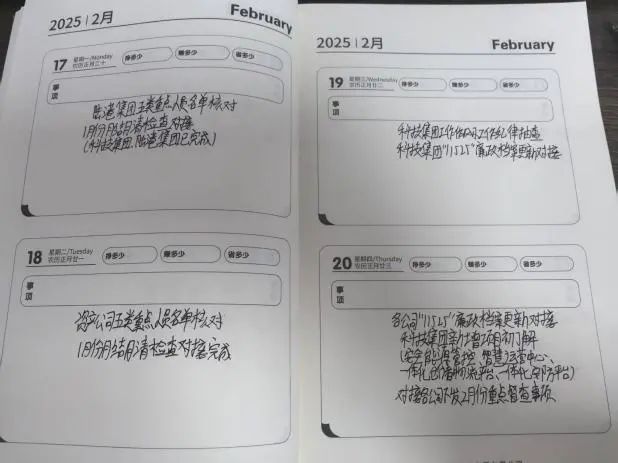 2025 | 2月
February
17 星期一/Monday
农历正月二十
挣多少
赚多少
省多少
事项
临港集团五类重点人员名单核对
1月份月结月清检查对接
(科技集团、临港集团已完成)
18 星期二/Tuesday
农历正月廿一
挣多少
赚多少
省多少
事项
公司五类重点人员名单核对
1月份月结月清检查对接完成
2025 | 2月
February
19 星期三/Wednesday
农历正月廿二
挣多少
赚多少
省多少
事项
科技集团工作作风工作纪律抽查
科技集团"11525"廉政档案更新对接
20 星期四/Thursday
农历正月廿三
挣多少
赚多少
省多少
事项
各公司"11525"廉政档案更新对接
科技集团新社管项目初了解
(安全能源管控、智慧运营中心、
一体化仓储物流平台、一体化安防平台)
对接各公司下发2月份重点督查事项